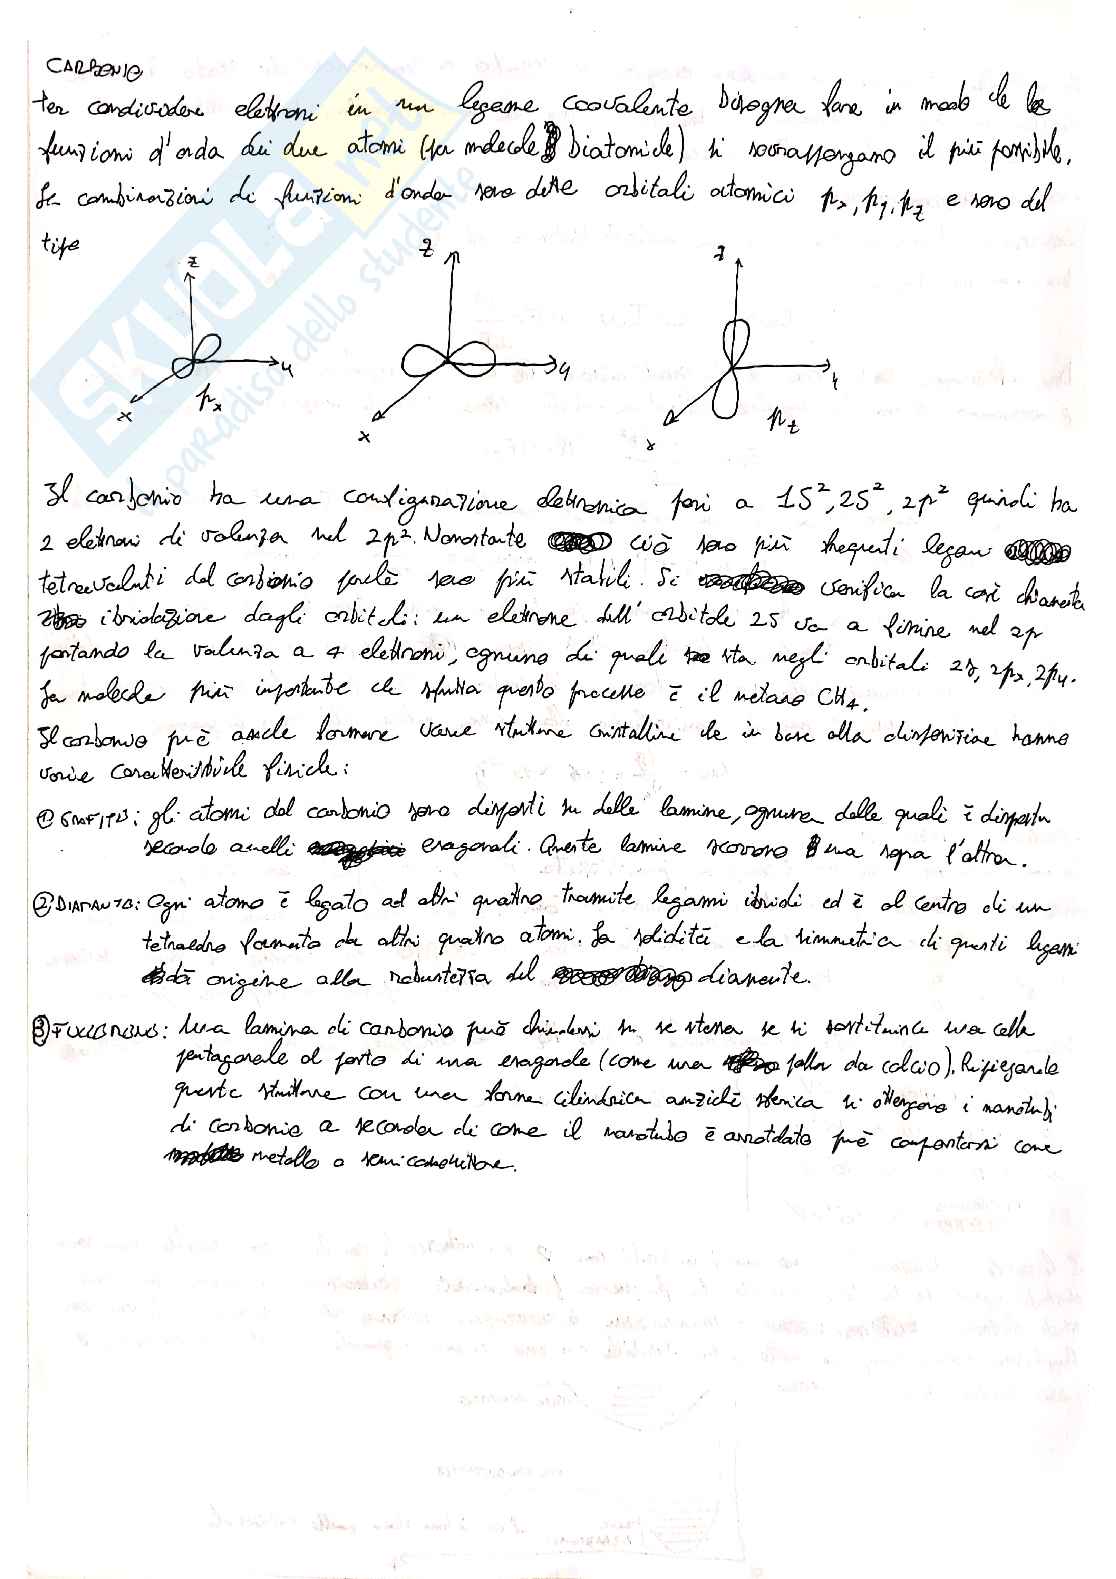 CARBONIO
Per condividere elettroni in un legame coovalente bisogna fare in modo che le
funzioni d'onda dei due atomi (per molecole biatomiche) si sovrappongano il più possibile.
Le combinazioni di funzioni d'onda sono dette orbitali atomici px, py, pz e sono del
tipo
z z z
y y y
x px x x pz
Il carbonio ha una configurazione elettronica pari a 1S², 2S², 2p² quindi ha
2 elettroni di valenza nel 2p². Nonostante ciò sono più frequenti legami
tetravalenti del carbonio perchè sono più stabili. Si verifica la così chiamata
ibridazione dagli orbitali: un elettrone dell'orbitale 2S va a finire nel 2p
portando la valenza a 4 elettroni, ognuno di quali sta negli orbitali 2s, 2px, 2py.
La molecole più importante che sfrutta questo processo è il metano CH4.
Il carbonio può anche formare varie strutture cristalline che in base alla disposizione hanno
varie caratteristiche fisiche:
① GRAFITE: gli atomi del carbonio sono disposti su delle lamine, ognuna delle quali è disposta
secondo anelli esagonali. Queste lamine scorrono una sopra l'altra.
② DIAMANTE: Ogni atomo è legato ad altri quattro tramite legami ibridi ed è al centro di un
tetraedro formato da altri quattro atomi. La solidità e la simmetria di questi legami
dà origine alla robustezza del diamante.
③ FULLERENE: Una lamina di carbonio può chiudersi su se stessa se si sostituisce una cella
pentagonale al posto di una esagonale (come una palla da calcio). Ripiegando
queste strutture con una forma cilindrica anzichè sferica si ottengono i nanotubi
di carbonio a seconda di come il nanotubo è arrotolato può comportarsi come
metallo o semiconduttore.
SKUOLA.net
paradiso dello studente